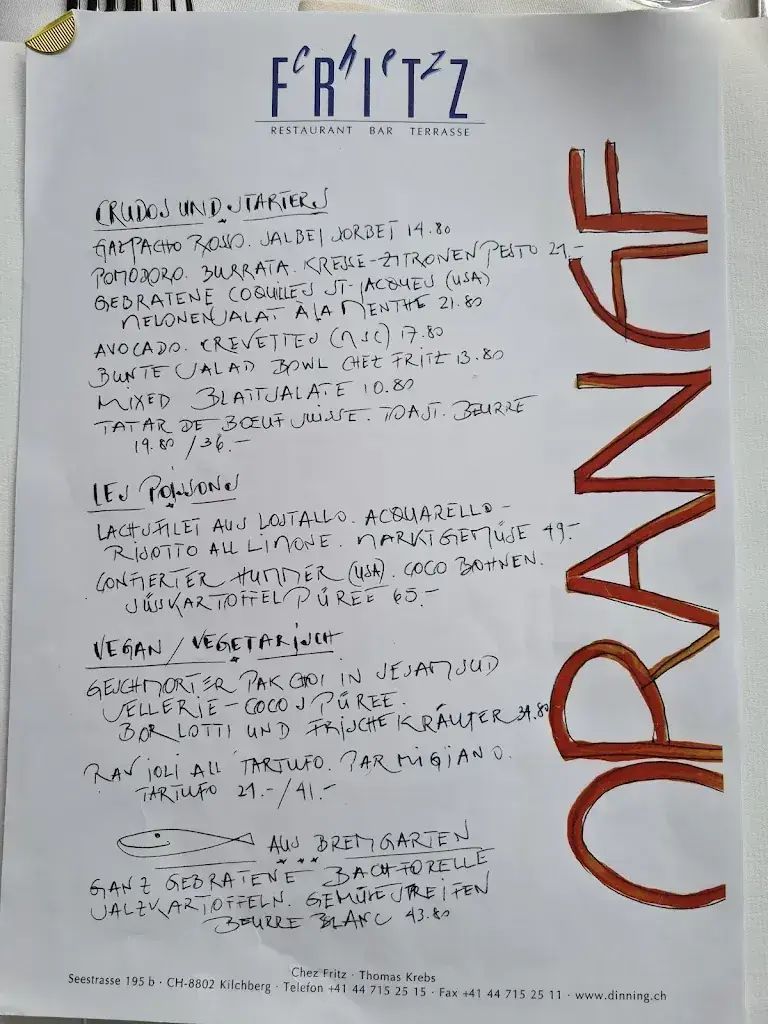 chezz
FRITZ
RESTAURANT BAR TERRASSE
CRUDOS UND STARTERS
GAZPACHO ROSSO. SALBEI SORBET 14.80
POMODORO. BURRATA. KRESSE-ZITRONEN PESTO 21.-
GEBRATENE COQUILLES ST-JACQUES (USA)
MELONENSALAT À LA MENTHE 21.80
AVOCADO. CREVETTES (MSC) 17.80
BUNTE SALAD BOWL CHEZ FRITZ 13.80
MIXED BLATTSALATE 10.80
TATAR DE BŒUF SUISSE. TOAST. BEURRE
19.80 / 36.-
LES POISSONS
LACHSFILET AUS LOSTALLO. ACQUARELLO-
RISOTTO AL LIMONE. MARKTGEMÜSE 49.-
CONFIERTER HUMMER (USA). COCO BOHNEN.
SÜSSKARTOFFELPÜREE 65.-
VEGAN / VEGETARISCH
GESCHMORTER PAK CHOI IN SESAMSUD
SELLERIE-COCOSPÜREE.
BORLOTTI UND FRISCHE KRÄUTER 34.80
RAVIOLI AL TARTUFO. PARMIGIANO.
TARTUFO 29.- / 41.-
AUS BREMGARTEN
GANZ GEBRATENE BACHFORELLE
SALZKARTOFFELN. GEMÜSESTREIFEN
BEURRE BLANC 43.80
ORANGE
Chez Fritz · Thomas Krebs
Seestrasse 195 b · CH-8802 Kilchberg · Telefon +41 44 715 25 15 · Fax +41 44 715 25 11 · www.dinning.ch